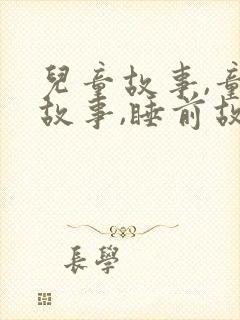 兒童故事,童
故事,睡前故
長學